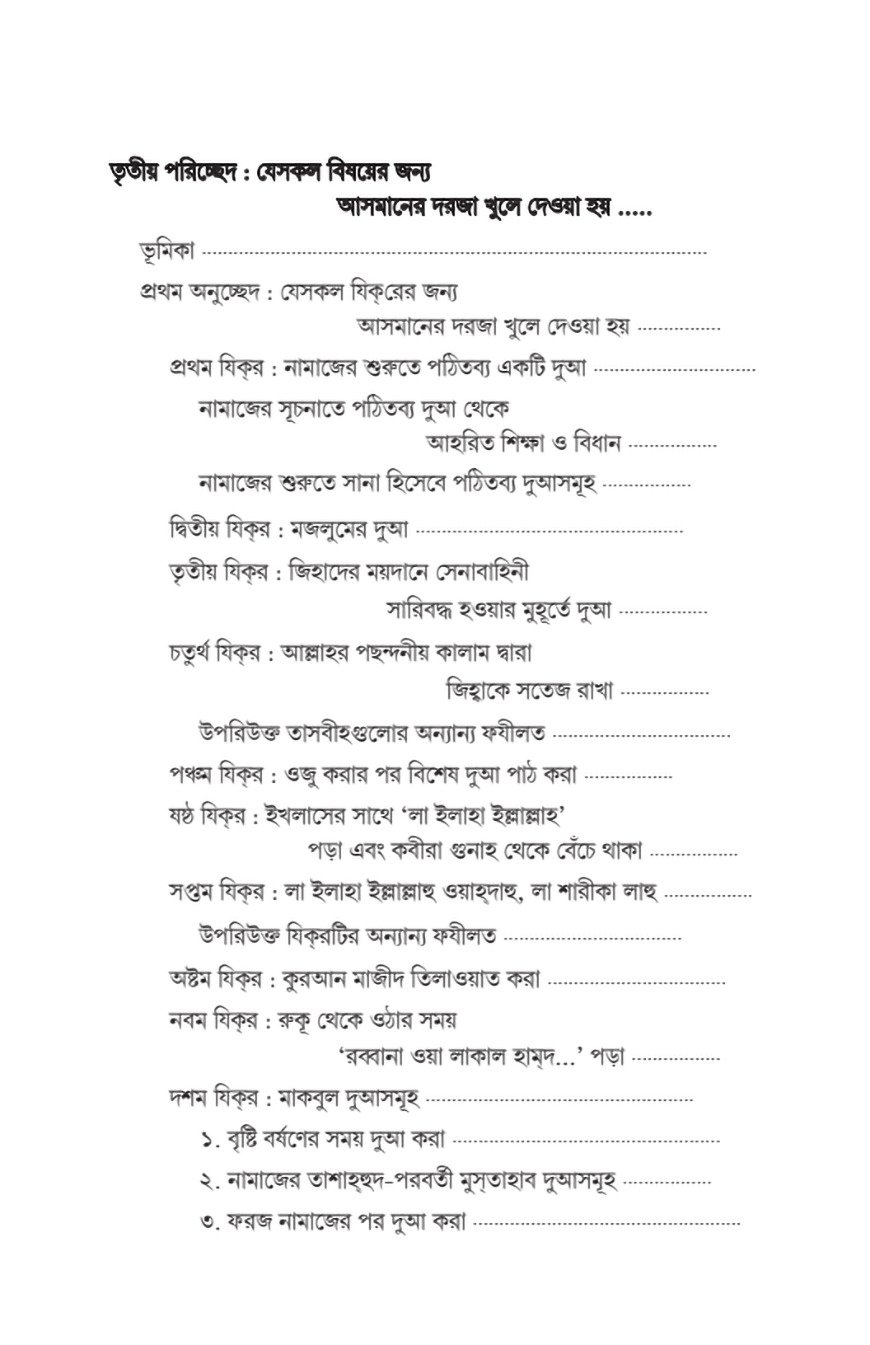 তৃতীয় পরিচ্ছেদ : যেসকল বিষয়ের জন্য
আসমানের দরজা খুলে দেওয়া হয় .....
ভূমিকা
প্রথম অনুচ্ছেদ : যেসকল যিক্‌রের জন্য
আসমানের দরজা খুলে দেওয়া হয়
প্রথম যিক্‌র : নামাজের শুরুতে পঠিতব্য একটি দুআ
নামাজের সূচনাতে পঠিতব্য দুআ থেকে
আহরিত শিক্ষা ও বিধান
নামাজের শুরুতে সানা হিসেবে পঠিতব্য দুআসমূহ
দ্বিতীয় যিক্‌র : মজলুমের দুআ
তৃতীয় যিক্‌র : জিহাদের ময়দানে সেনাবাহিনী
সারিবদ্ধ হওয়ার মুহূর্তে দুআ
চতুর্থ যিক্‌র : আল্লাহর পছন্দনীয় কালাম দ্বারা
জিহ্বাকে সতেজ রাখা
উপরিউক্ত তাসবীহগুলোর অন্যান্য ফযীলত
পঞ্চম যিক্‌র : ওজু করার পর বিশেষ দুআ পাঠ করা
ষষ্ঠ যিক্‌র : ইখলাসের সাথে ‘লা ইলাহা ইল্লাল্লাহ’
পড়া এবং কবীরা গুনাহ থেকে বেঁচে থাকা
সপ্তম যিক্‌র : লা ইলাহা ইল্লাল্লাহু ওয়াহ্‌দাহু, লা শারীকা লাহু
উপরিউক্ত যিক্‌রটির অন্যান্য ফযীলত
অষ্টম যিক্‌র : কুরআন মাজীদ তিলাওয়াত করা
নবম যিক্‌র : রুকূ থেকে ওঠার সময়
‘রব্বানা ওয়া লাকাল হাম্‌দ...’ পড়া
দশম যিক্‌র : মাকবুল দুআসমূহ
১. বৃষ্টি বর্ষণের সময় দুআ করা
২. নামাজের তাশাহ্‌হুদ-পরবর্তী মুস্‌তাহাব দুআসমূহ
৩. ফরজ নামাজের পর দুআ করা